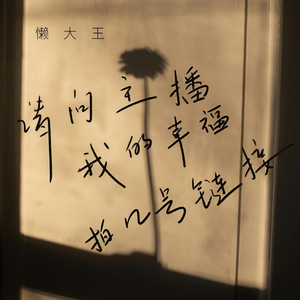 懒大王
请问主播
我的幸福
拍几号链接